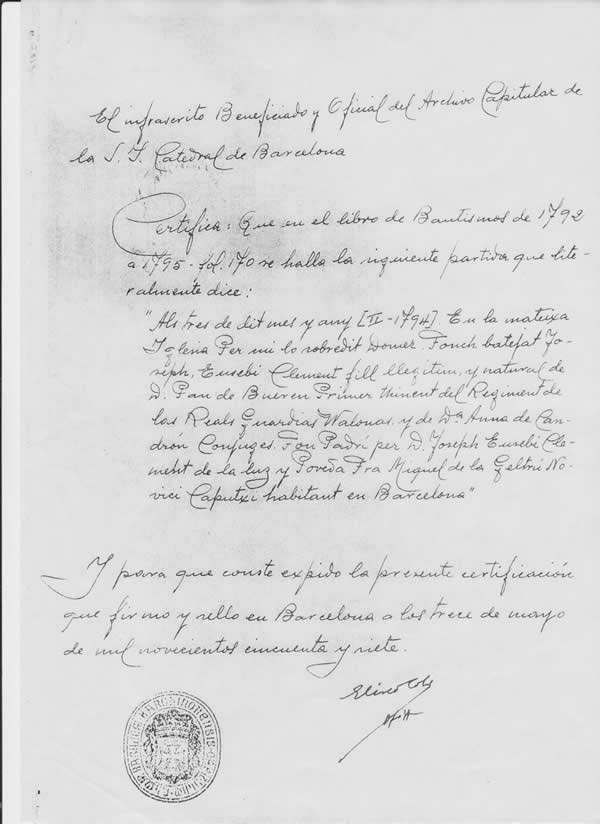 El infrascrito Beneficiado y Oficial del Archivo Capitular de
la S. I. Catedral de Barcelona
Certifica: Que en el libro de Bautismos de 1792
a 1795 - fol. 170 se halla la siguiente partida que lite-
ralmente dice:
"Als tres de dit mes y any [II-1794]. En la mateixa
Iglesia Per mi lo sobredit Domer Fonch batejat Jo-
seph, Eusebi Clement fill llegitim, y natural de
D. Pau de Bueren Primer thinent del Regiment de
las Reals Guardias Walonas, y de Dª Anna de Can-
dron Conjuges. Fou Padrí per D. Joseph Eusebi Cle-
ment de la Luz y Poveda Fra Miquel de la Geltrú No-
vici Caputxi habitant en Barcelona"
Y para que conste expido la presente certificación
que firmo y sello en Barcelona a los trece de mayo
de mil novecientos cincuenta y siete.